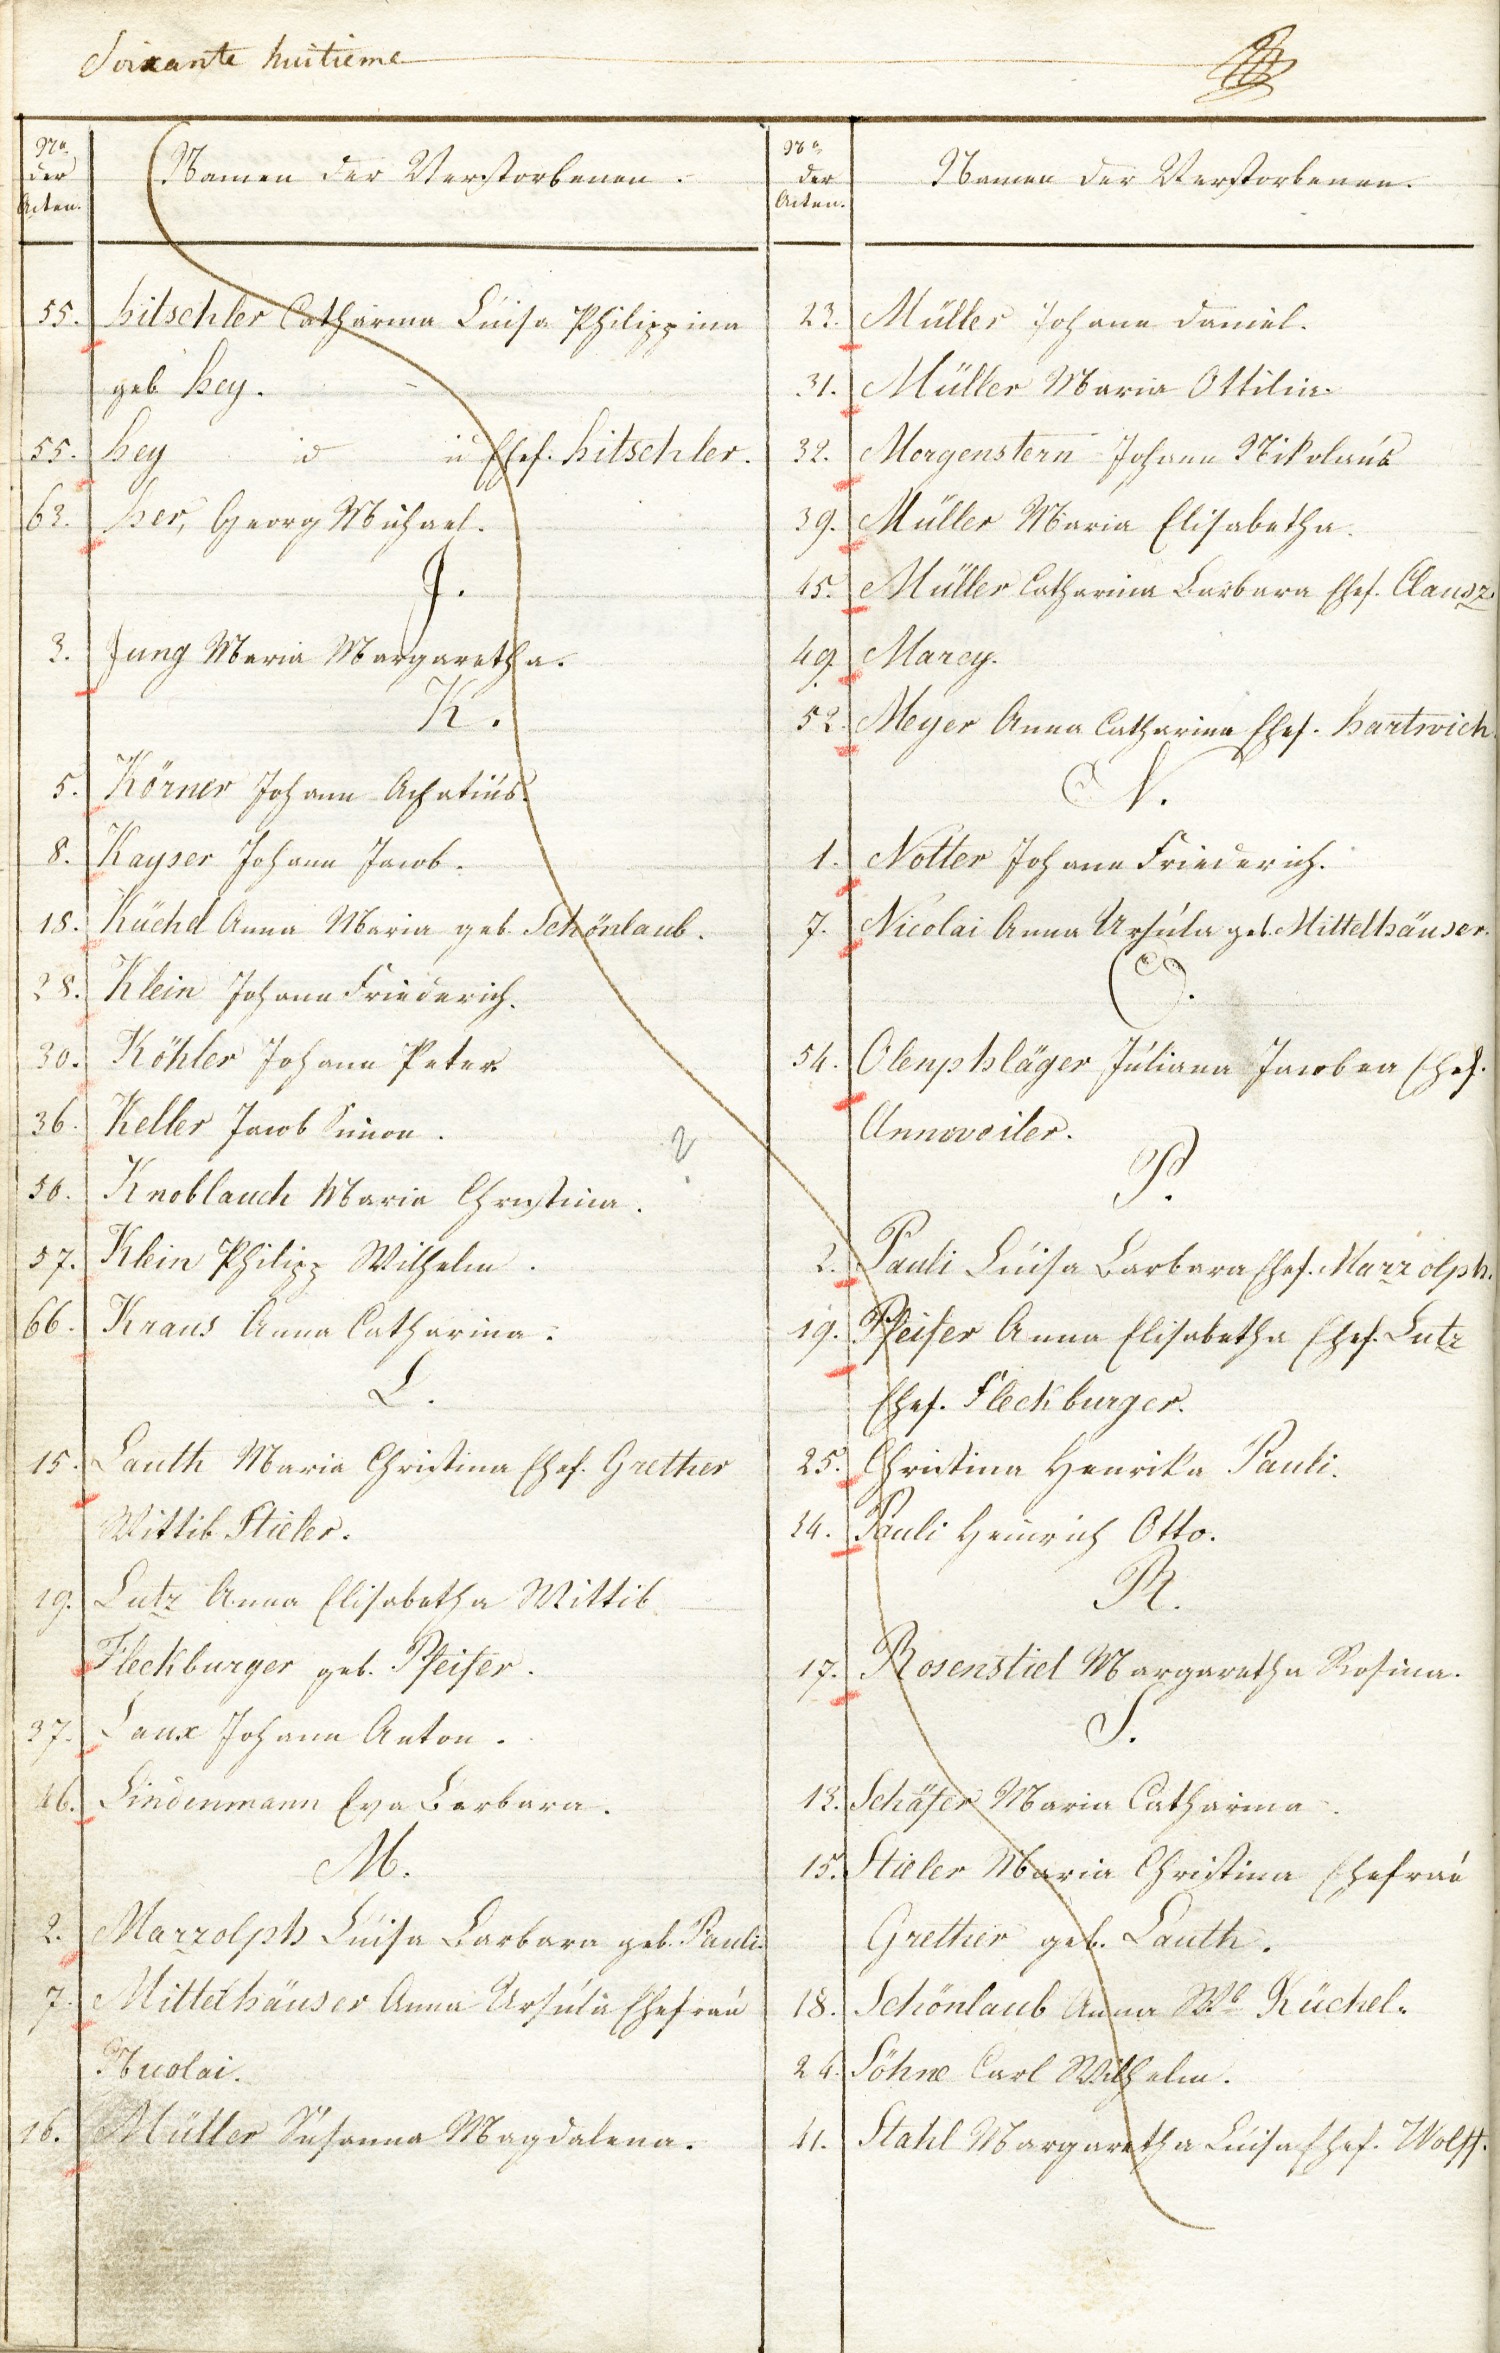 Soixante huitieme
No der Acten.
Namen der Verstorbenen.
55. hitschler Catharina Luisa Philippina
geb. hey.
55. hey id u Ehef. hitschler.
63. her, Georg Michael.
J.
3. Jung Maria Margaretha.
K.
5. Körner Johann Achatius.
8. Kayser Johann Jacob.
18. Küchel Anna Maria geb. Schönlaub.
28. Klein Johann Friederich.
30. Köhler Johann Peter.
36. Keller Jacob Simon.
50. Knoblauch Maria Christina. ?
57. Klein Philipp Wilhelm.
66. Kraus Anna Catharina.
L.
15. Lauth Maria Christina Ehef. Grether
Wittib Stieler.
19. Lutz Anna Elisabetha Wittib
Fleckburger geb. Pfeifer.
37. Laux Johann Anton.
46. Lindenmann Eva Barbara.
M.
2. Marzolph Luisa Barbara geb. Pauli.
7. Mittelhäuser Anna Ursula Ehefrau
Nicolai.
16. Müller Susanna Magdalena.
No der Acten.
Namen der Verstorbenen.
23. Müller Johann Daniel.
31. Müller Maria Ottilia.
32. Morgenstern Johann Nikolaus
39. Müller Maria Elisabetha.
45. Müller Catharina Barbara Ehef. Clausz.
49. Marcy.
52. Meyer Anna Catharina Ehef. hartwich.
N.
1. Notter Johann Friederich.
7. Nicolai Anna Ursula geb. Mittelhäuser.
O.
54. Olenphläger Juliana Jacobea Ehef.
Annweiler.
P.
2. Pauli Luisa Barbara Ehef. Marzolph.
19. Pfeifer Anna Elisabetha Ehef. Lutz
Ehef. Fleckburger.
25. Christina Henrika Pauli.
34. Pauli Heinrich Otto.
R.
17. Rosenstiel Margaretha Rosina.
S.
13. Schäfer Maria Catharina.
15. Stieler Maria Christina Ehefrau
Grether geb. Lauth.
18. Schönlaub Anna Ma Küchel.
24. Söhne Carl Wilhelm.
41. Stahl Margaretha Luisa Ehef. Wolff.